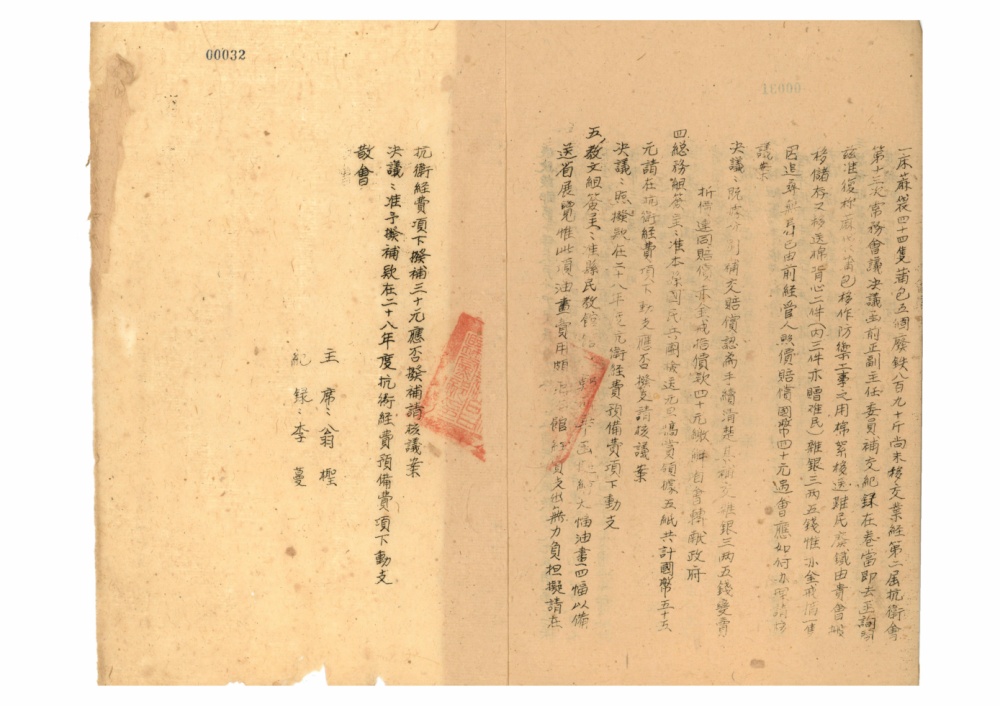 00032
一床蔴袋四十四隻蒲包五個廢鉄八百九十斤尚未移交業經第二屆抗衛會
第十三次常務會議決議函前正副主任委員補交紀錄在卷當即去函詢問
茲准復称蔴袋蒲包移作防禦工事之用棉絮移送難民廢鉄由貴會
移儲存又移送棉背心二件(內三件亦贈难民)雜銀三两五錢惟小金戒指一隻
因追尋無着已由前經管人照價賠償國幣四十元過會應如何办理請
議案
決議:既 補交賠償認為手續清楚 雜銀三两五錢變賣
折價連同賠償小金戒指價款四十元繳 自書 献政府
四總務組簽呈:准本 國民兵團 送元旦犒賞領據五紙共計國幣五十五
元請在抗衛經費項下動支應否擬支請核議案
決議:照撥款在二十八年度抗衛經費預備費項下動支
五教文組簽呈:准縣民教館 大幅油畫四幅以備
送省展覽惟此項油畫費用頗 館經費支絀無力負担擬請在
抗衛經費項下撥補三十元應否撥補請核議案
決議:准予撥補款在二十八年度抗衛經費預備費項下動支
散會
主席:翁檉
紀錄:李蔓